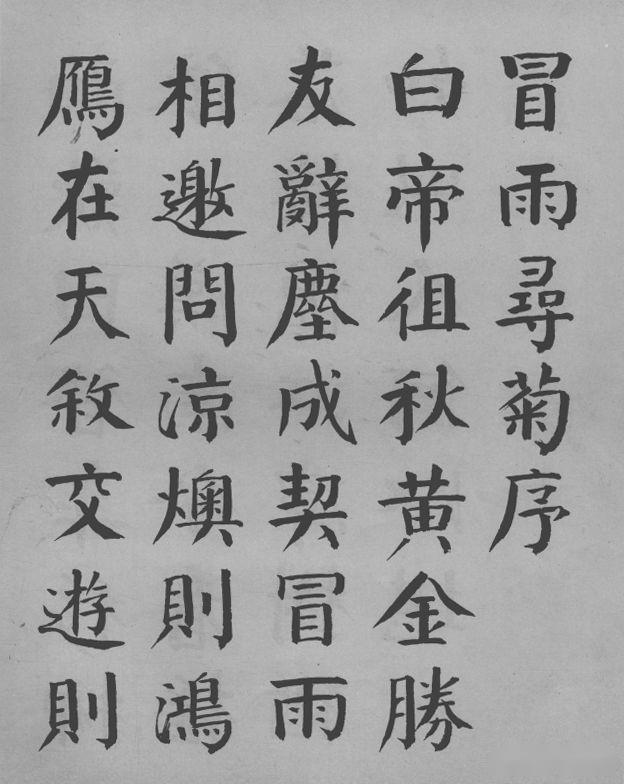 冒雨尋菊序
白帝徂秋黄金勝
友辭塵成契冒雨
相邀問涼燠則鴻
鴈在天敘交遊則